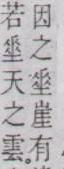 因之埀崖有
若埀天之雲。